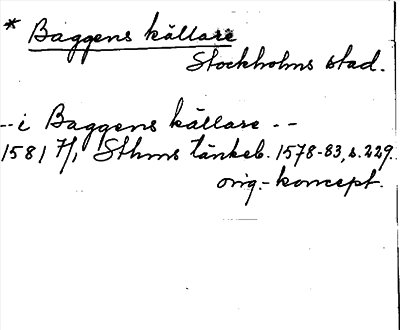 * Baggens källare
Stockholms stad.
-- i Baggens källare --
1581 7/1 Sthms tänkeb. 1578-83, s. 229.
orig.- koncept.